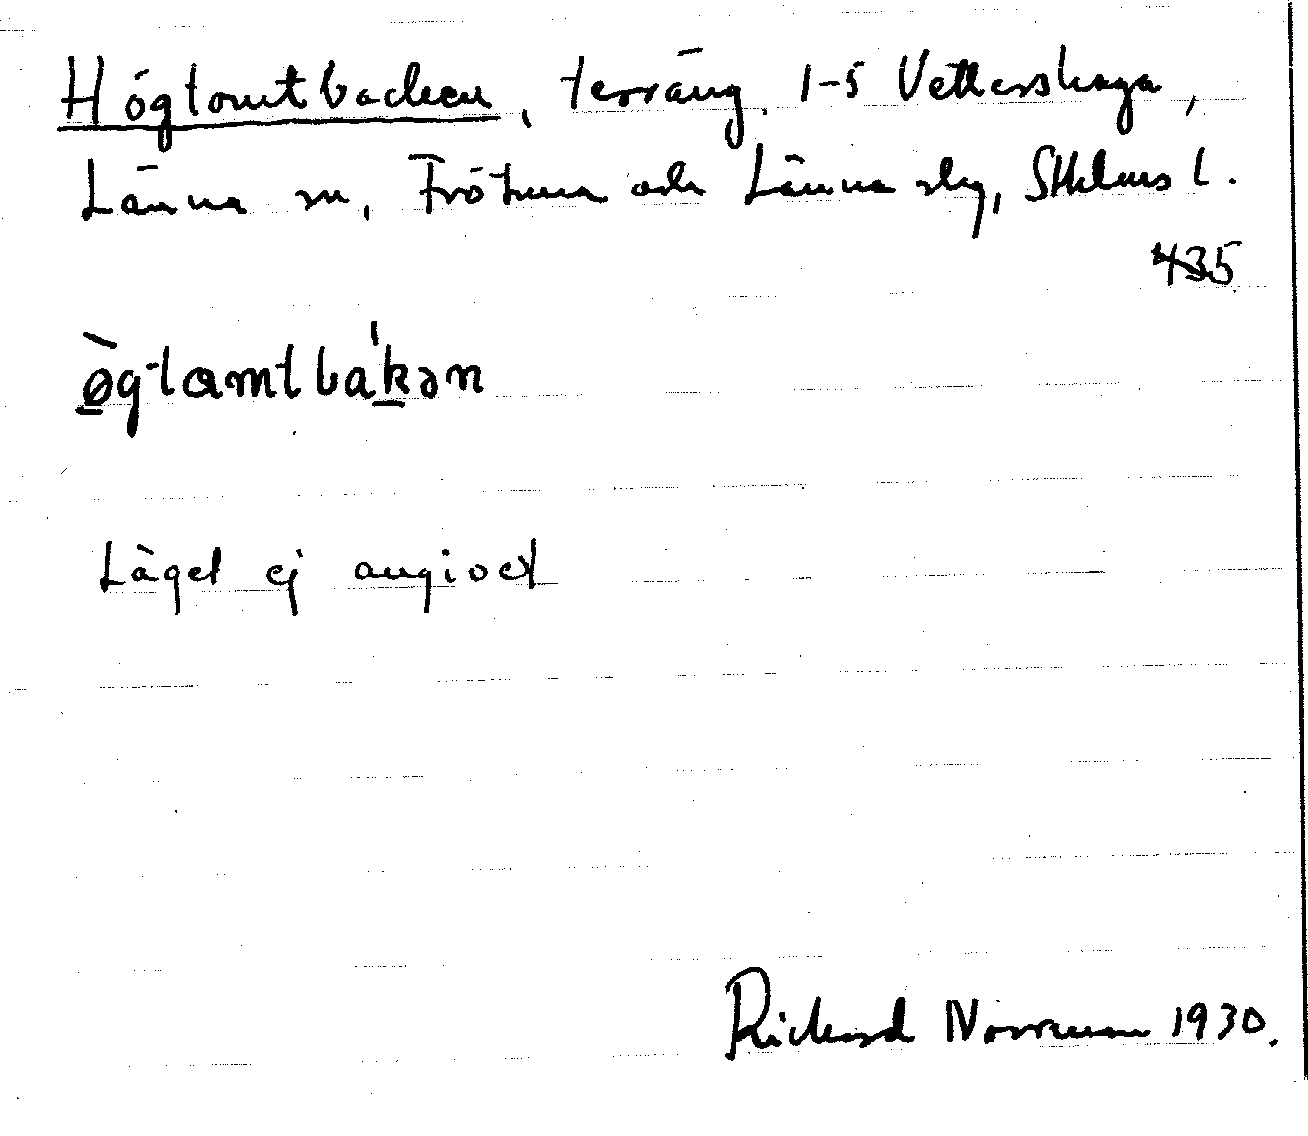 Högtomtbacken, terräng. 1-5 Vettershaga,
Länna sn, Frötuna och Länna skg, Sthlms l.
435
ø̀gtαmtbak̠ən
Läget ej angivet
Rickard Norrman 1930.